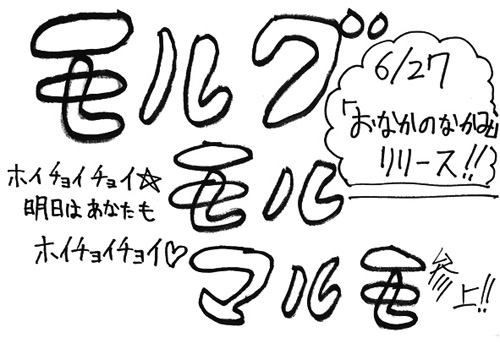 モルグ
モル
マルモ
参上!!
6/27
「おなかのなかみ」
リリース!!
ホイチョイチョイ☆
明日はあなたも
ホイチョイチョイ♡